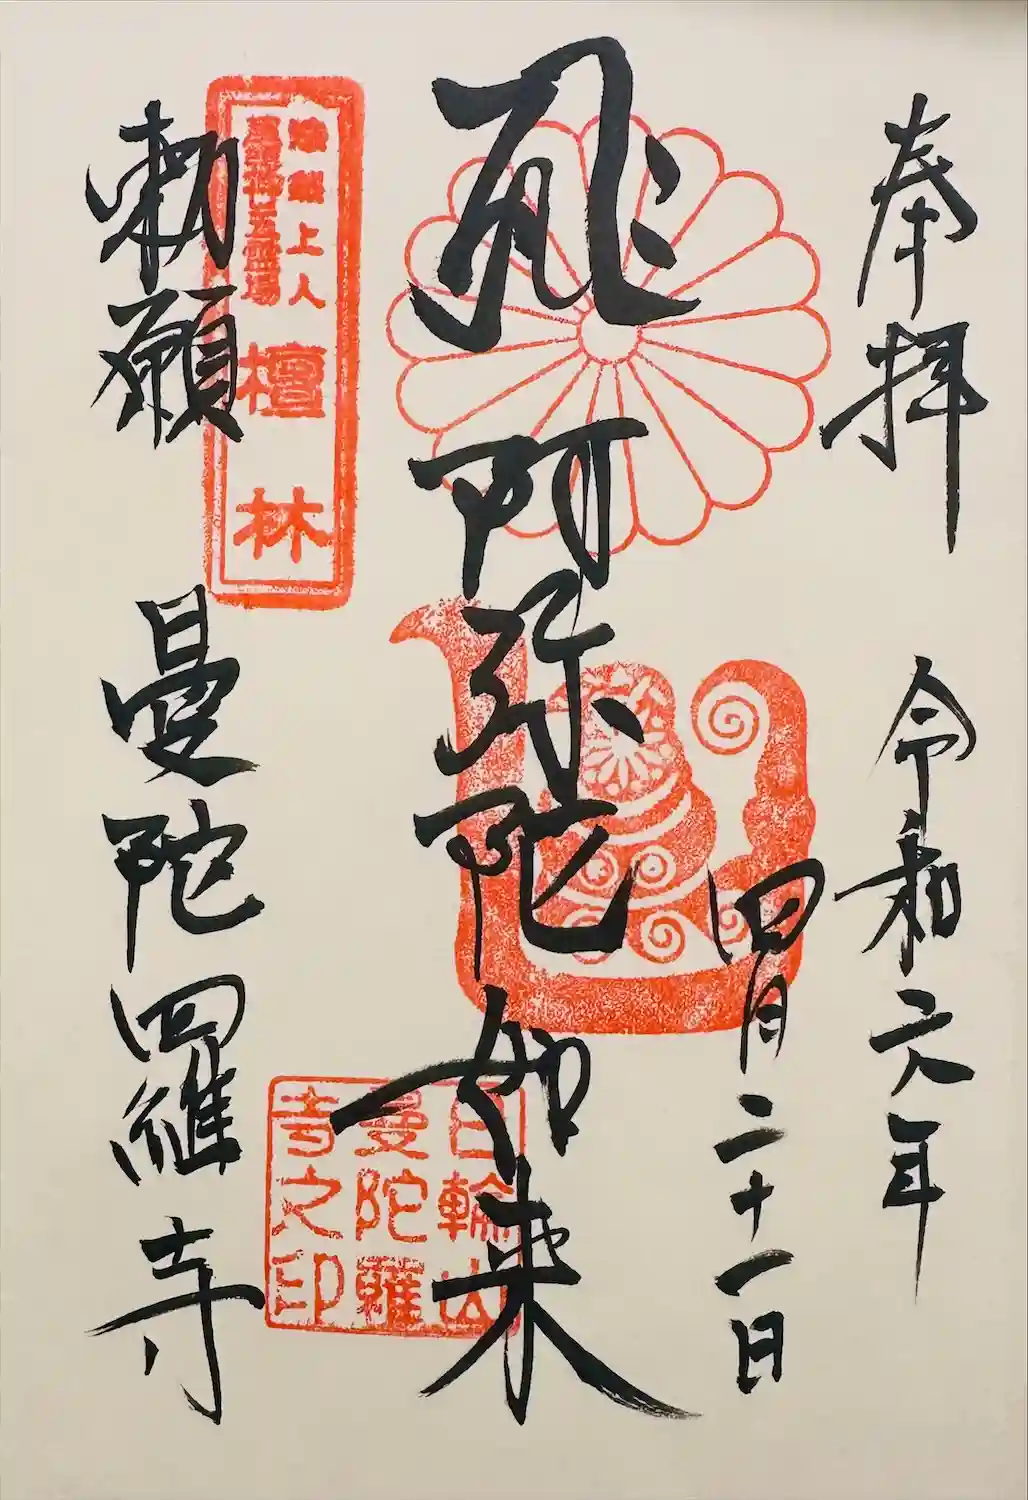 奉拝
令和六年
四月二十一日
阿弥陀如来
勅願
曼陀羅寺
上人
霊場
檀林
日輪山
曼陀羅
寺之印